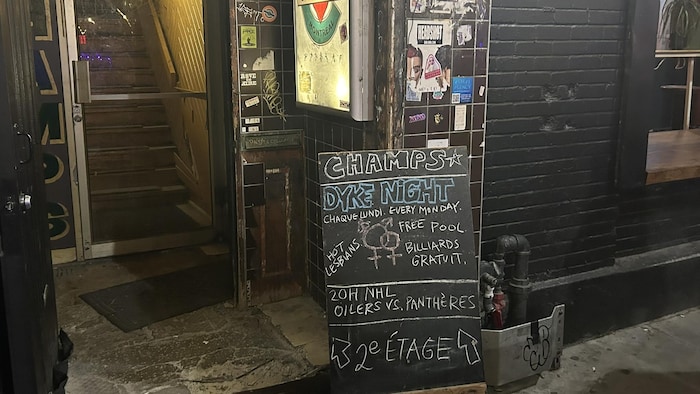 CHAMPS
HEADSHOT
CHAMPS
DYKE NIGHT
CHAQUE LUNDI. EVERY MONDAY.
HOT LESBIANS
FREE POOL
BILLIARDS
GRATUIT.
20H NHL
OILERS VS. PANTHÈRES
2e ÉTAGE